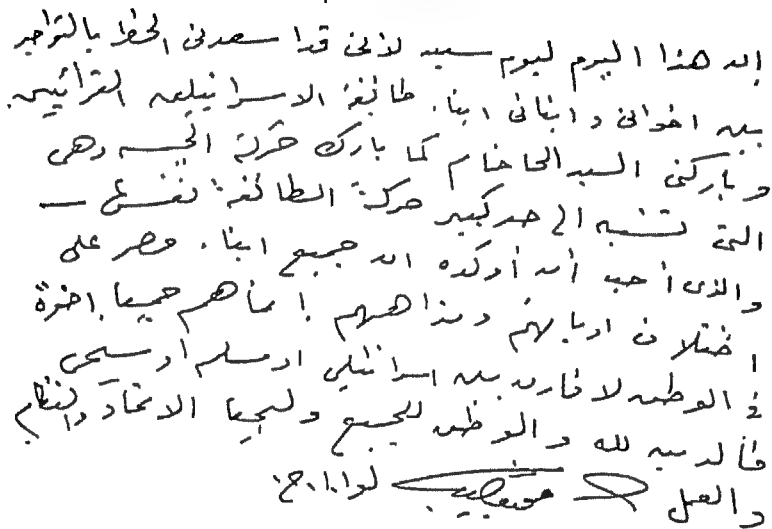 إن هذا اليوم ليوم سعيد لأننى قد أسعدنى الحظ بالتواجد
بين اخوانى وابنائى ابناء طائفة الاسرائيليين القرائيين
وباركنى السيد الحاخام كما بارك حركة الجيش وهى
التى تشبه الى حد كبير حركة الطائفة نفسها
والذى أحب أن أؤكده ان جميع ابناء مصر على
اختلاف اديانهم ومذاهبهم إنما هم جميعا إخوة
فى الوطن لا فارق بين اسرائيلى او مسلم أو مسيحى
فالدين لله والوطن للجميع وليحيا الاتحاد والنظام
والعمل محمد نجيب لواء أ.ح.